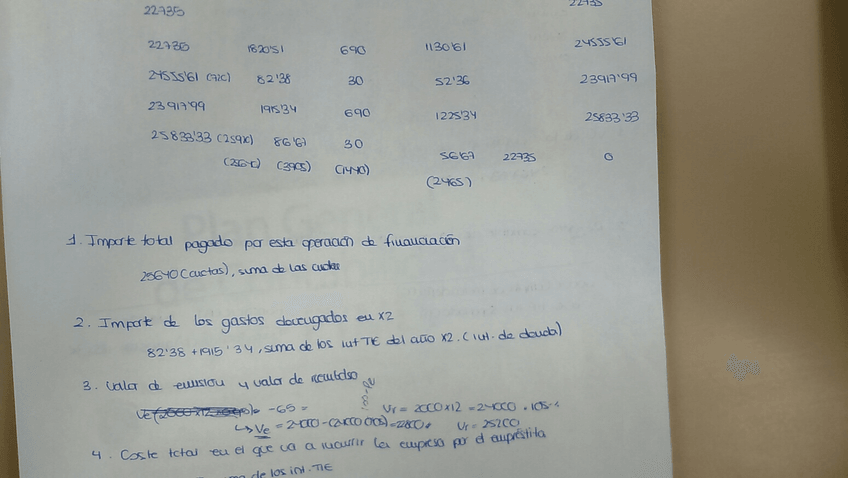 22735 22735
22735 1820'51 690 1130'61 24555'61
24555'61 (72C) 82'38 30 52'36 23917'99
23917'99 1915'34 690 1225'34 25833'33
25833'33 86'67 30
56'67 22735 0
(3905) (1440)
(2465)
1. Importe total pagado por esta operación de financiación
25640 (cuotas), suma de las cuotas
2. Importe de los gastos devengados en X2
82'38 + 1915'34, suma de los int TIE del año X2. (int. de deuda)
3. Valor de emisión y valor de reembolso
-65 = Vr = 2000x12 = 24000
↳ Ve = Vr = 25200
4. Coste total en el que va a incurrir la empresa por el empréstito
de los int. TIE